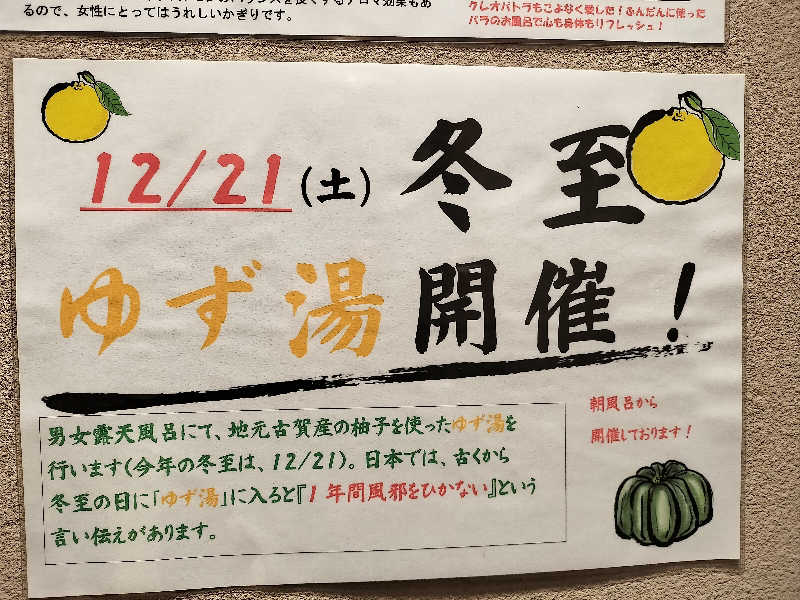 るので、女性にとってはうれしいかぎりです。
クレオパトラもこよなく愛した！ふんだんに使った
バラのお風呂で心も身体もリフレッシュ！
12/21(土) 冬至
ゆず湯開催！
男女露天風呂にて、地元古賀産の柚子を使ったゆず湯を
行います(今年の冬至は、12/21)。日本では、古くから
冬至の日に「ゆず湯」に入ると『1年間風邪をひかない』という
言い伝えがあります。
朝風呂から
開催しております！